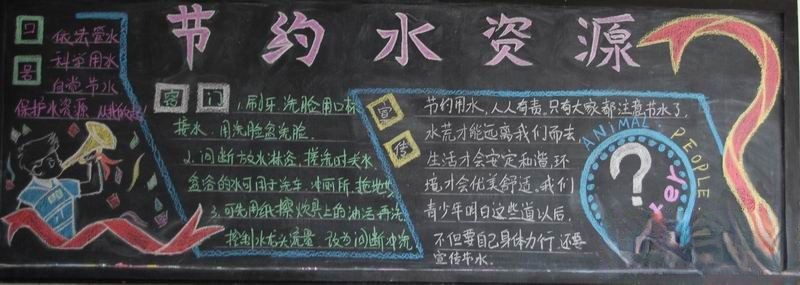 节约水资源
口号
依法管水
科学用水
自觉节水
保护水资源
窍门
1.刷牙、洗脸用口杯
接水,用洗脸盆洗脸.
2.间断放水淋浴,搓洗时关水.
盆浴的水可用于洗车、冲厕所、拖地
3.可先用纸擦炊具上的油污再洗
控制水龙头流量,改为间断冲洗
宣传
节约用水,人人有责,只有大家都注意节水了,
水荒才能远离我们而去,
生活才会安定和谐,环
境才会优美舒适,我们
青少年明白这些道以后,
不但要自己身体力行,还要
宣传节水.
ANIMAL. PEOPLE.
?
ter